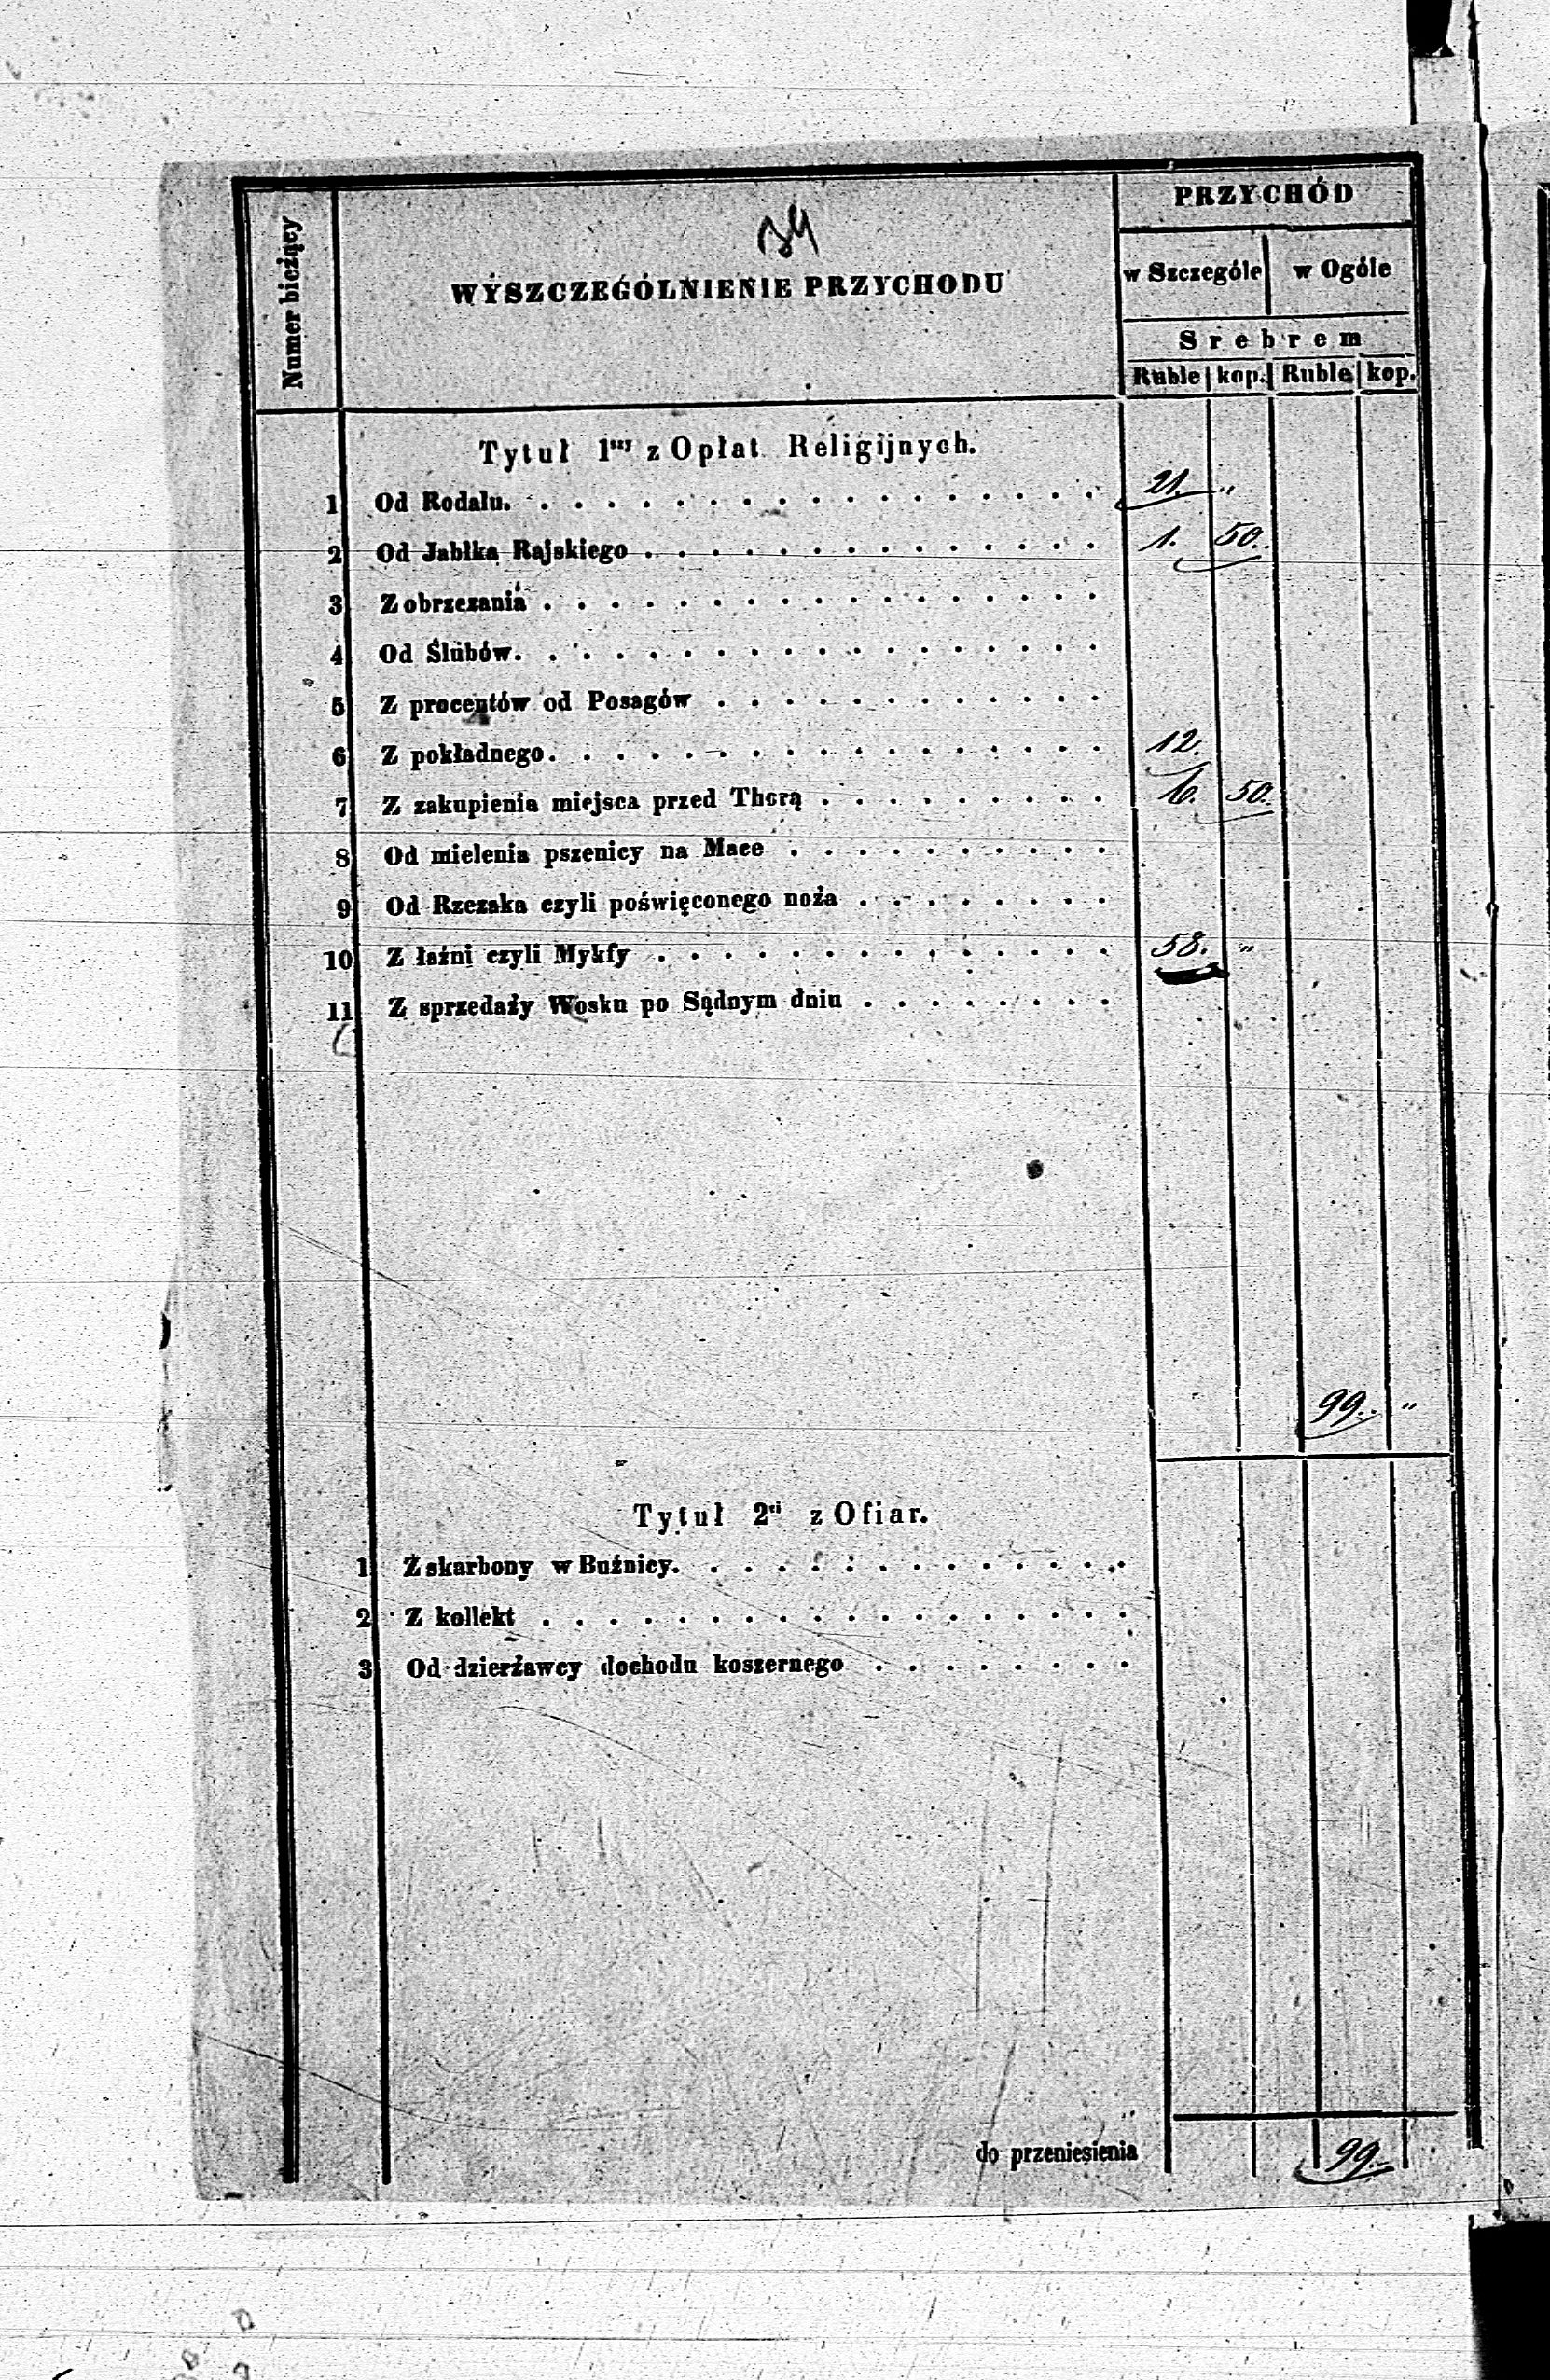 34
Numer bieżący
WYSZCZEGÓLNIENIE PRZYCHODU
PRZYCHÓD
w Szczególe w Ogóle
Srebrem
Ruble kop. Ruble kop.
Tytuł 1szy z Opłat Religijnych.
1 Od Rodału. . . . . . . . . . . . . . . . . . . 21. "
2 Od Jabłka Rajskiego . . . . . . . . . . . . . . 1. 50.
3 Z obrzezania . . . . . . . . . . . . . . . . .
4 Od Ślubów. . . . . . . . . . . . . . . . . . .
5 Z procentów od Posagów . . . . . . . . . . . .
6 Z pokładnego. . . . . . . . . . . . . . . . . . 12.
7 Z zakupienia miejsca przed Thorą . . . . . . . . . 6. 50.
8 Od mielenia pszenicy na Mace . . . . . . . . . .
9 Od Rzezaka czyli poświęconego noża . . . . . . . .
10 Z łaźni czyli Mykfy . . . . . . . . . . . . . . 58. "
11 Z sprzedaży Wosku po Sądnym dniu . . . . . . . .
99. "
Tytuł 2gi z Ofiar.
1 Z skarbony w Buźnicy. . . . . . . . . . . . . . .
2 Z kollekt . . . . . . . . . . . . . . . . . .
3 Od dzierżawcy dochodu koszernego . . . . . . . .
do przeniesienia 99.